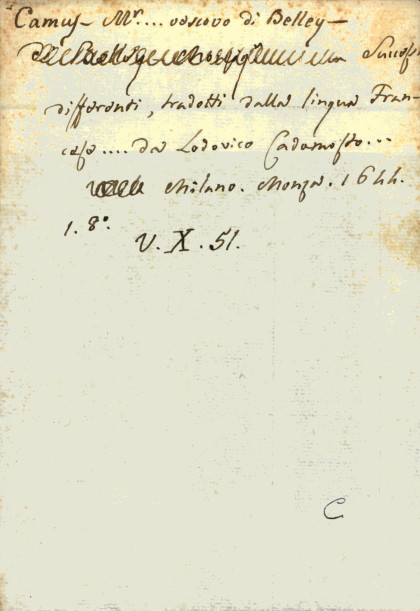 Camus - Mr.... vescovo di Belley -
Successi
differenti, tradotti dalla lingua Fran-
cese.... da Lodovico Cadamosto...
Milano. Monza. 1644.
1. 8o.
V. X. 51.
C